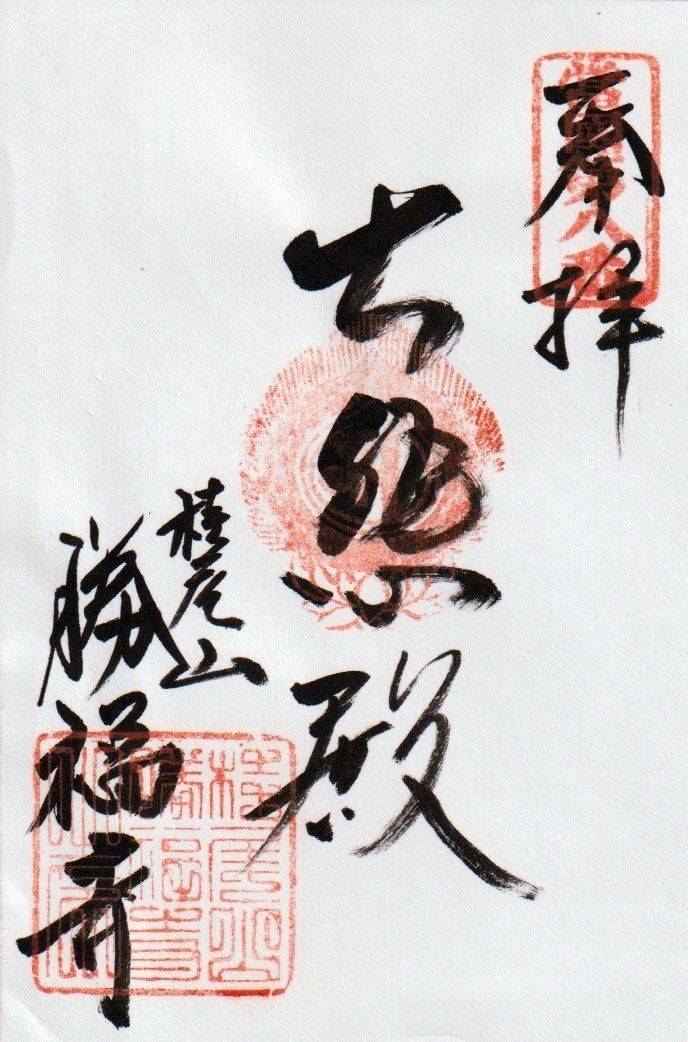 奉拝
大悲殿
桂尾山
勝福寺
桂尾山
勝福寺